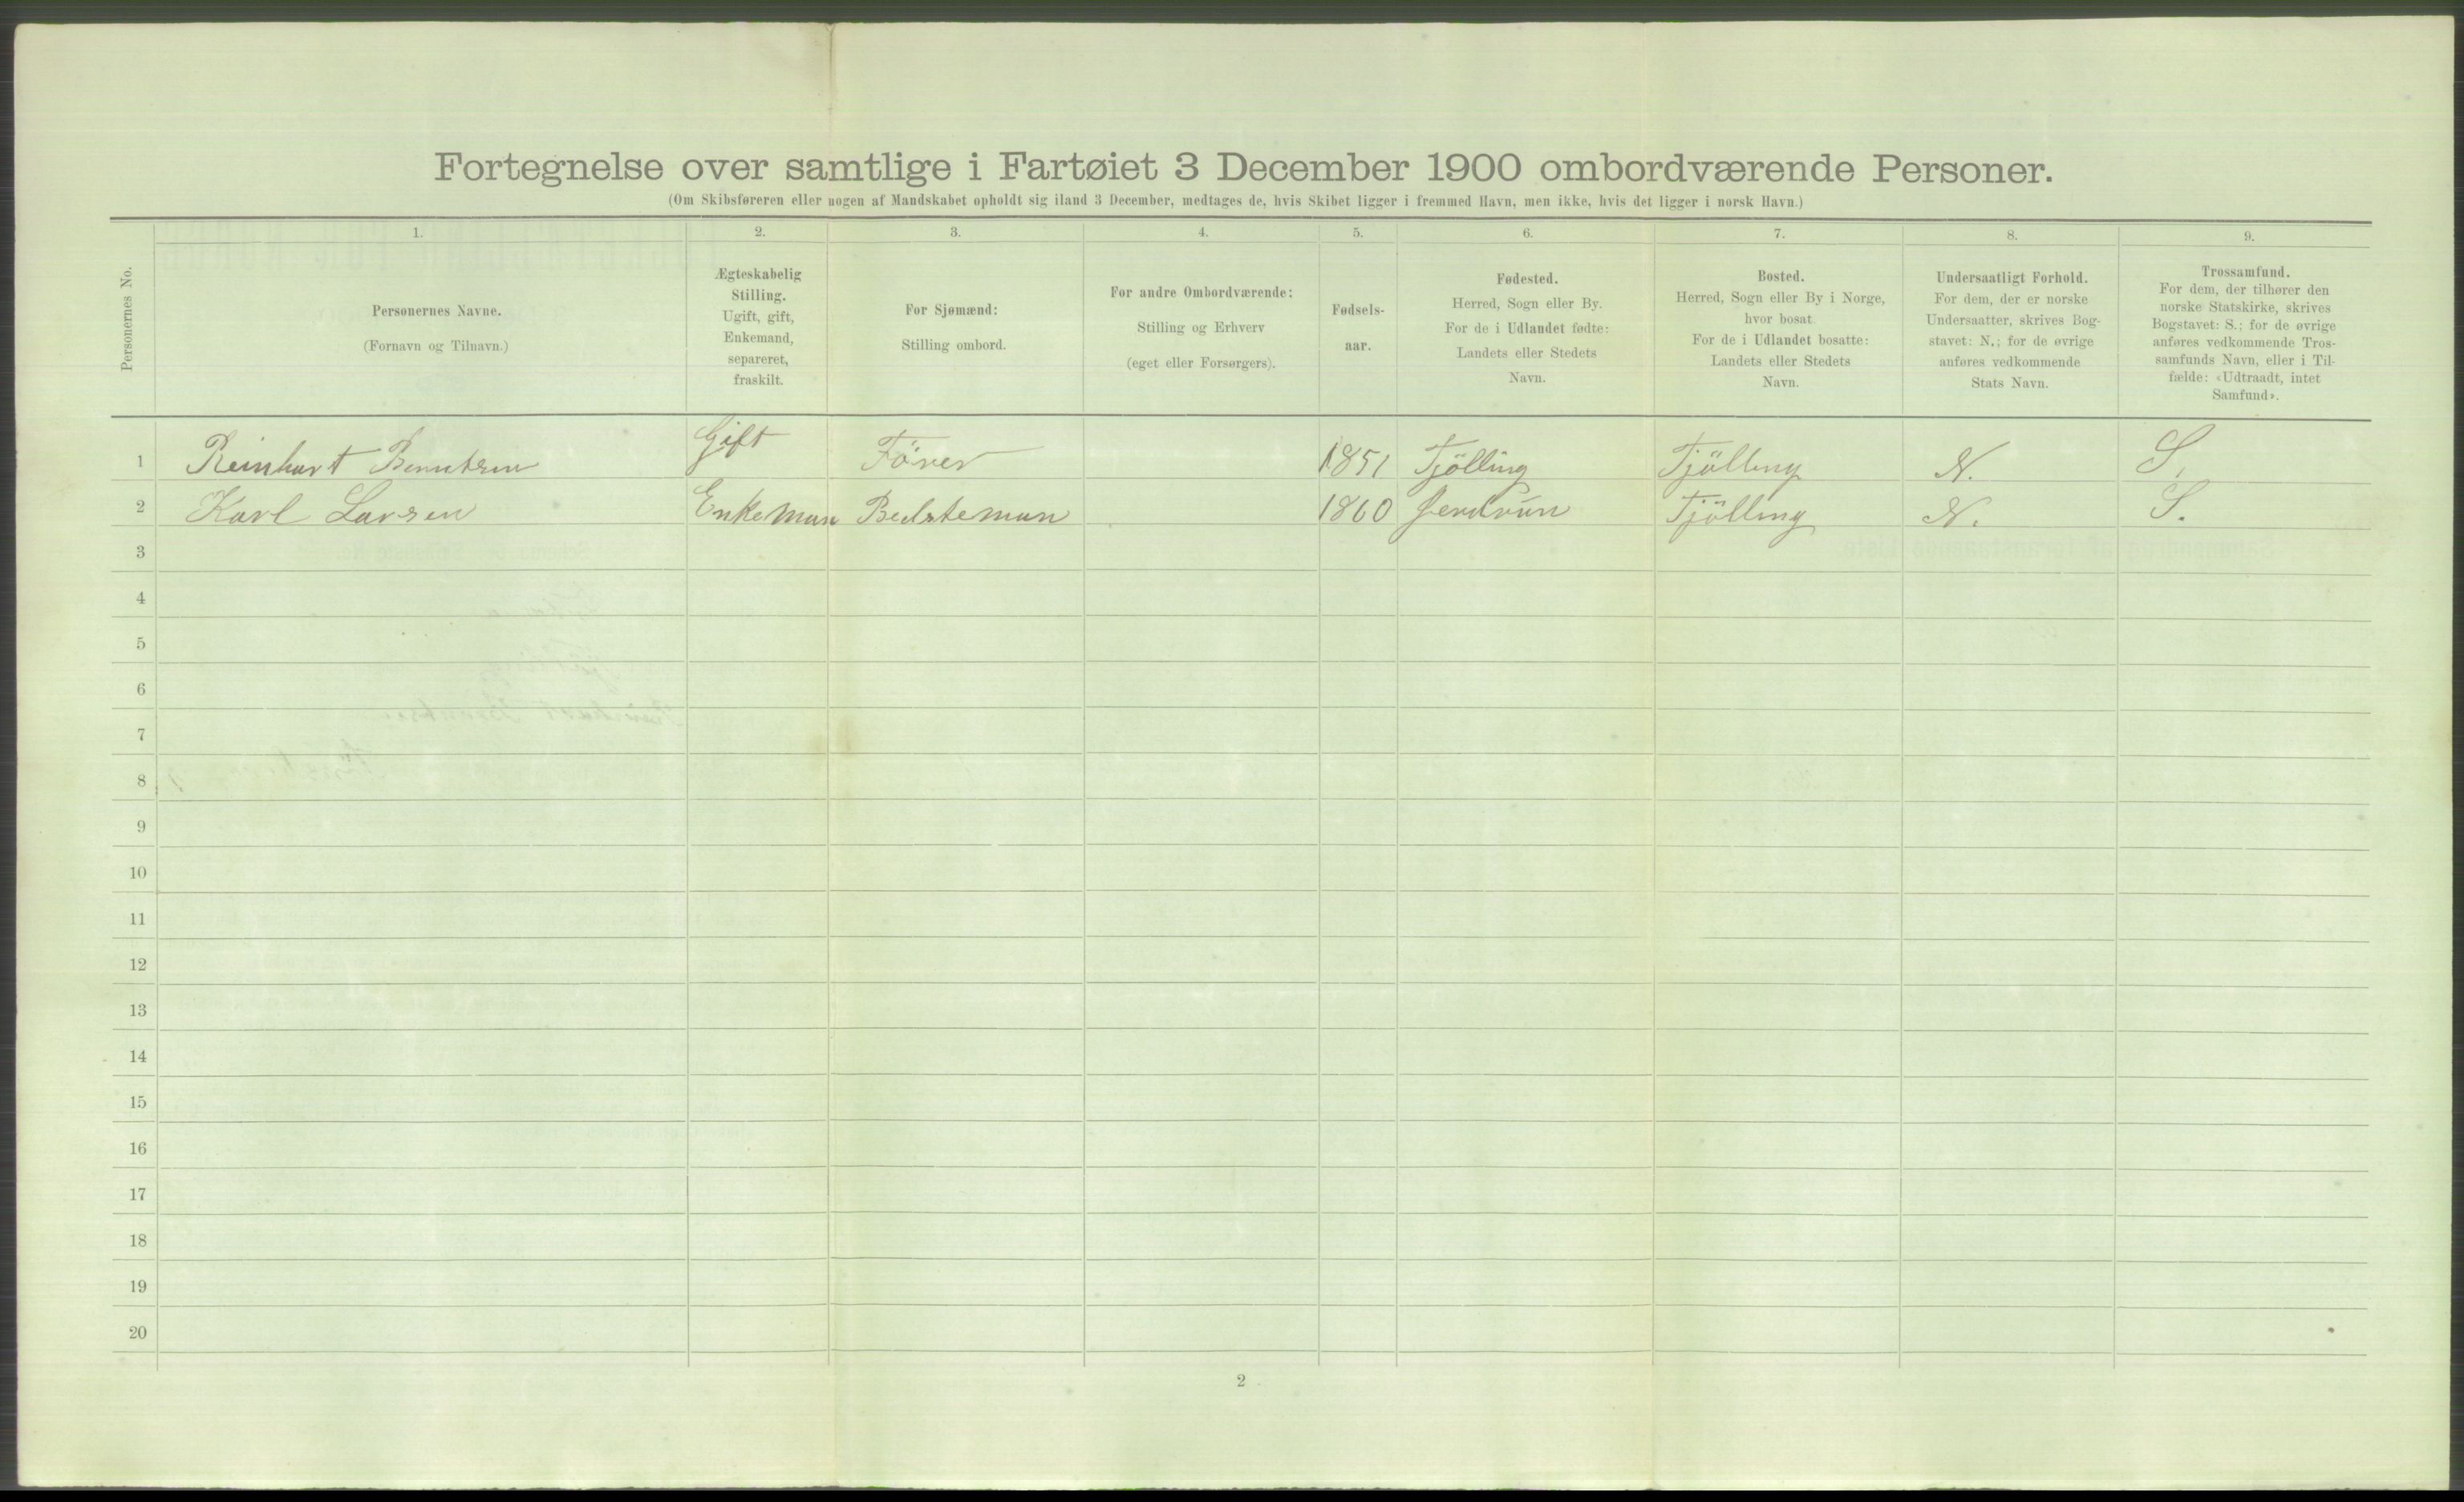 Fortegnelse over samtlige i Fartøiet 3 December 1900 ombordværende Personer.
(Om Skibsføreren eller nogen af Mandskabet opholdt sig iland 3 December, medtages de, hvis Skibet ligger i fremmed Havn, men ikke, hvis det ligger i norsk Havn.)
Personernes No.
1.
Personernes Navne.
(Fornavn og Tilnavn.)
2.
Ægteskabelig
Stilling.
Ugift, gift,
Enkemand,
separeret,
fraskilt.
3.
For Sjømænd:
Stilling ombord.
4.
For andre Ombordværende:
Stilling og Erhverv
(eget eller Forsørgers).
5.
Fødsels-
aar.
6.
Fødested.
Herred, Sogn eller By.
For de i Udlandet fødte:
Landets eller Stedets
Navn.
7.
Bosted.
Herred, Sogn eller By i Norge,
hvor bosat
For de i Udlandet bosatte:
Landets eller Stedets
Navn.
8.
Undersaatligt Forhold.
For dem, der er norske
Undersaatter, skrives Bog-
stavet: N.; for de øvrige
anføres vedkommende
Stats Navn.
9.
Trossamfund.
For dem, der tilhører den
norske Statskirke, skrives
Bogstavet: S.; for de øvrige
anføres vedkommende Tros-
samfunds Navn, eller i Til-
fælde: «Udtraadt, intet
Samfund».
1 Reinhart Berntsen Gift Förer 1851 Tjölling Tjölling N. S.
2 Karl Larsen Enkeman Bedsteman 1860 Tjölling N. S.
3
4
5
6
7
8
9
10
11
12
13
14
15
16
17
18
19
20
2